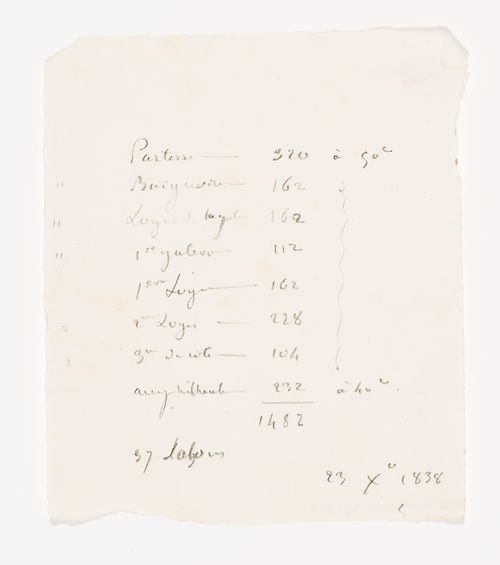 Parterre 320 à 50c
" Baignoire 162
" Loges de la gal 162
" 1res galerie 112
1res Loges 162
2 2es Loges 228
2 3es de côté 104
amphithéat 232 à 40c.
1482
37
23 Xe 1838